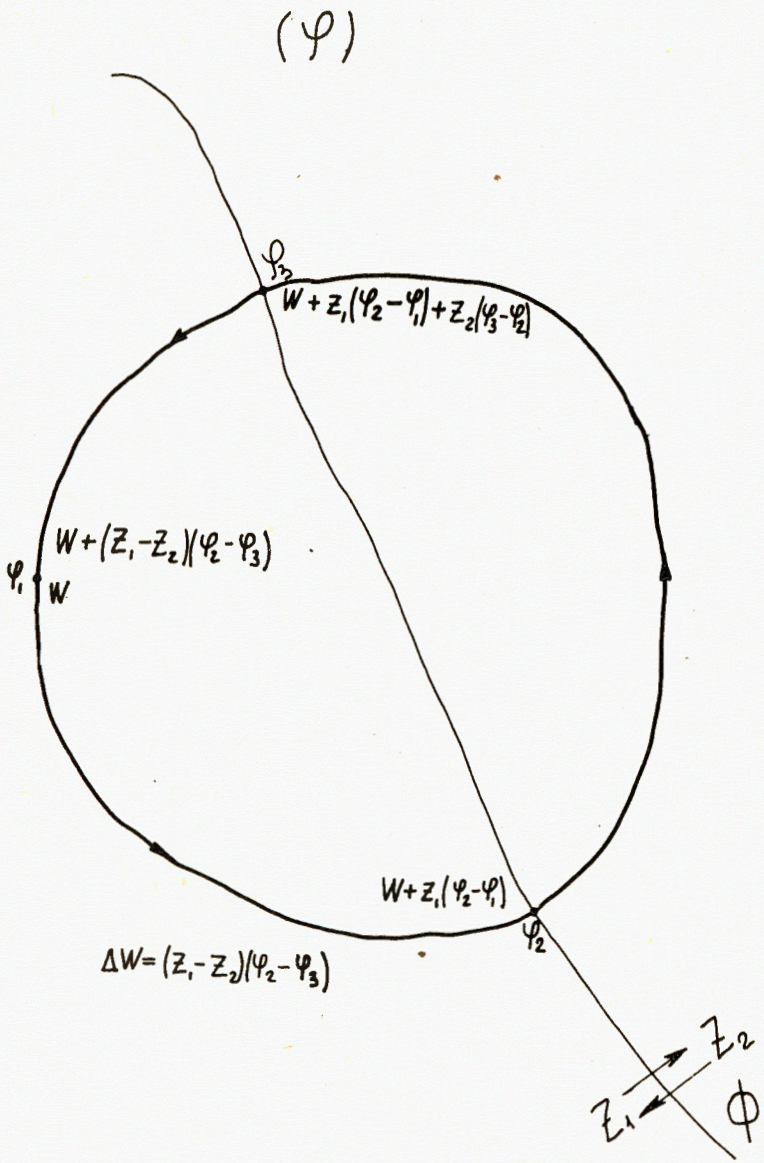 (φ)
φ₃
W + Z₁(φ₂ - φ₁) + Z₂(φ₃ - φ₂)
W + (Z₁ - Z₂)(φ₂ - φ₃)
φ₁
W
W + Z₁(φ₂ - φ₁)
φ₂
ΔW = (Z₁ - Z₂)(φ₂ - φ₃)
Z₂
Z₁
Φ